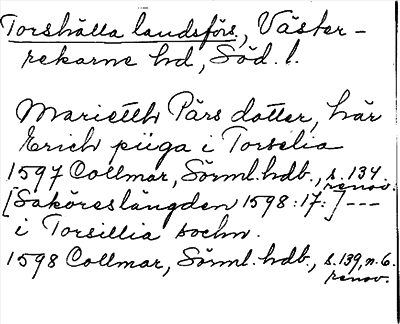 Torshälla landsförs., Väster-
rekarne hd, Söd. l.
Marietth Pärs dotter, här
Erich piiga i Torselia
1597 Collmar, Sörml. hdb., s. 134
renov.
[Saköreslängden 1598:17:] ---
i Torsillia sochn.
1598 Collmar, Sörml. hdb., s. 139, n. 6.
renov.